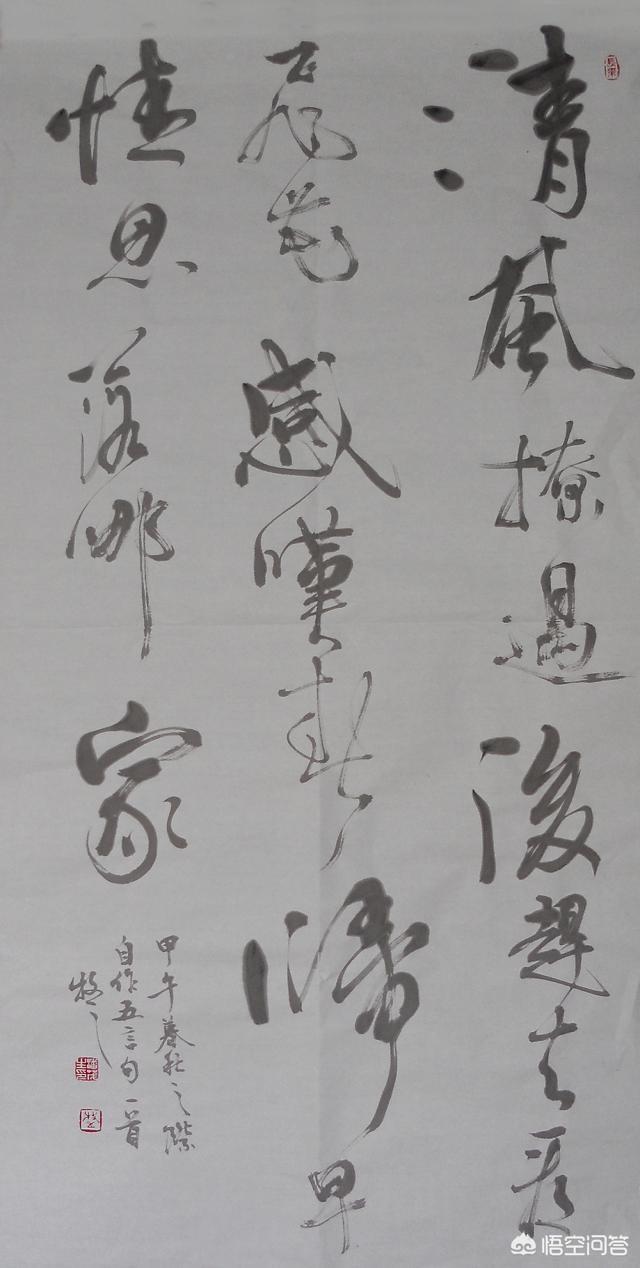 清風撩過後趕去尋
飛花感嘆春歸早
情思落哪家
甲午暮秋之際
自作五言句一首
悟空问答